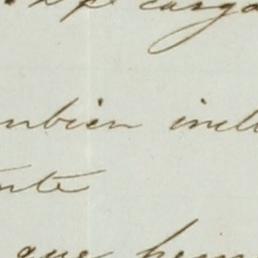 carga
mbien incl
nte
que hem